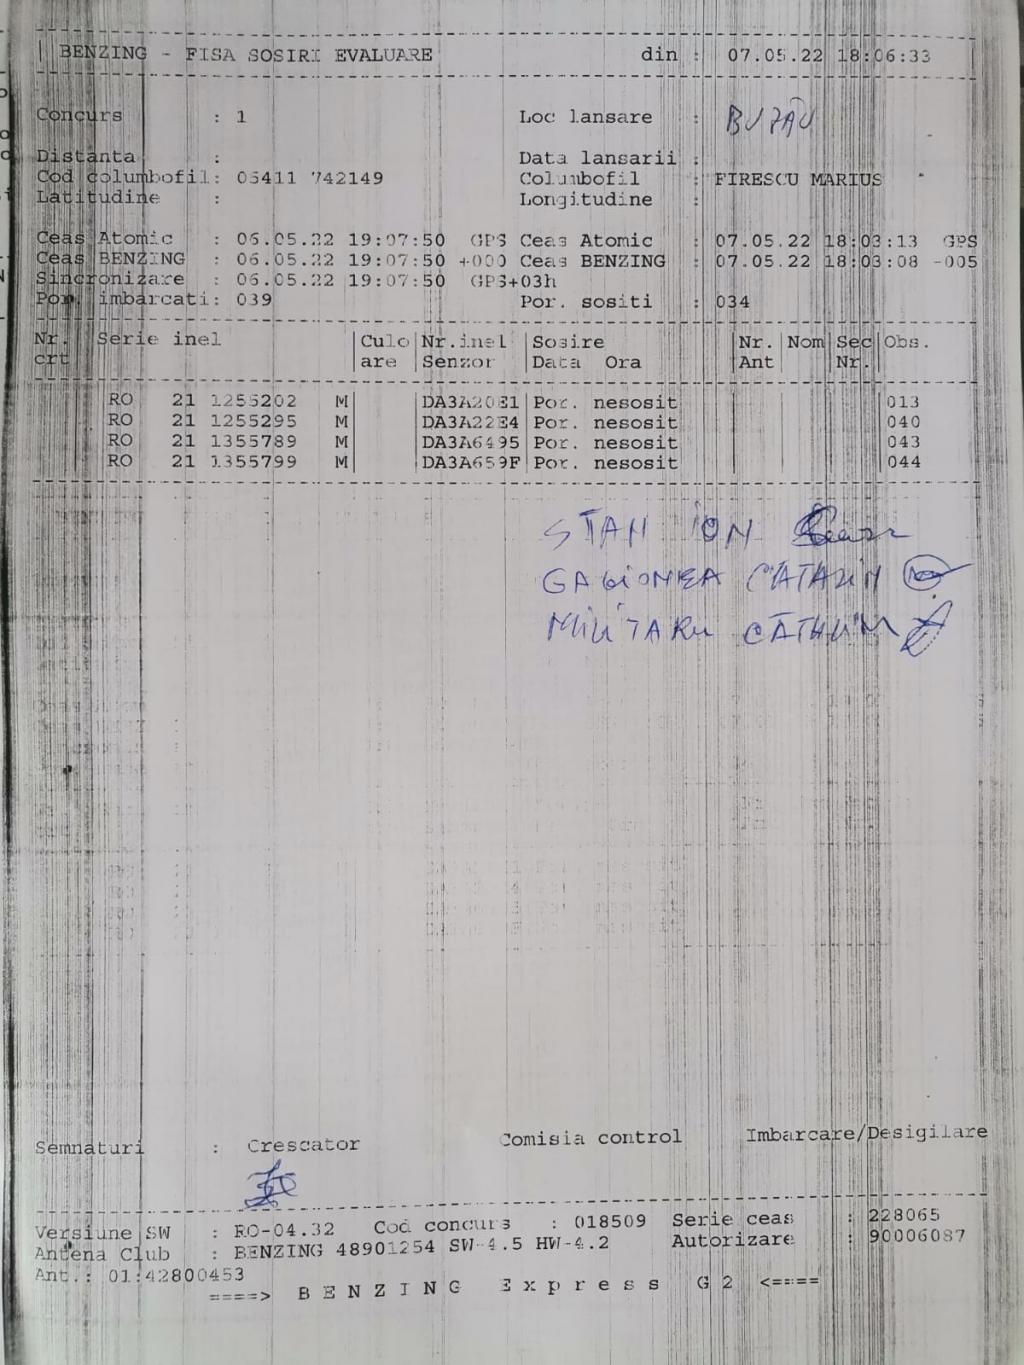 BENZING - FISA SOSIRI EVALUARE din : 07.05.22 18:06:33
Concurs : 1 Loc lansare : BUZĂU
Distanta : Data lansarii :
Cod columbofil: 05411 742149 Columbofil : FIRESCU MARIUS
Latitudine : Longitudine :
Ceas Atomic : 06.05.22 19:07:50 GPS Ceas Atomic : 07.05.22 18:03:13 GPS
Ceas BENZING : 06.05.22 19:07:50 +000 Ceas BENZING : 07.05.22 18:03:08 -005
Sincronizare : 06.05.22 19:07:50 GPS+03h
Por. imbarcati: 039 Por. sositi : 034
Nr. Serie inel Culo Nr.inel Sosire Nr. Nom Sec Obs.
crt are Senzor Data Ora Ant Nr.
RO 21 1255202 M DA3A20E1 Por. nesosit 013
RO 21 1255295 M DA3A22E4 Por. nesosit 040
RO 21 1355789 M DA3A6495 Por. nesosit 043
RO 21 1355799 M DA3A659F Por. nesosit 044
STAN ION
CATALIN
MILITARU CĂTĂLIN
Semnaturi : Crescator Comisia control Imbarcare/Desigilare
Versiune SW : RO-04.32 Cod concurs : 018509 Serie ceas : 228065
Antena Club : BENZING 48901254 SW-4.5 HW-4.2 Autorizare : 90006087
Ant.: 01:42800453
====> BENZING Express G2 <====